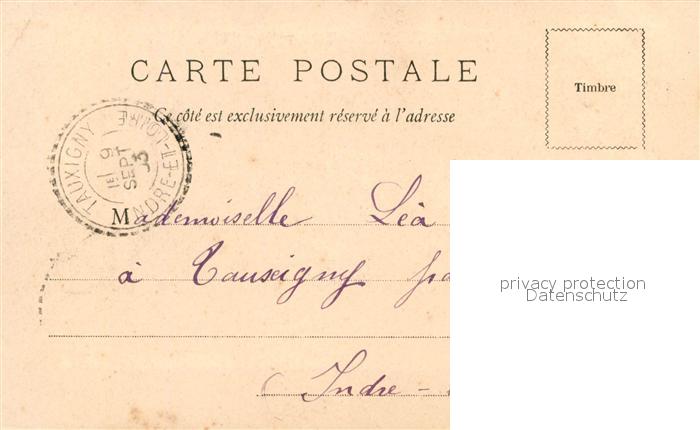 CARTE POSTALE
Timbre
Ce côté est exclusivement réservé à l'adresse
TAUXIGNY INDRE-ET-LOIRE
9
SEPT
Mademoiselle Léa
à Tauxigny pa
Indre -
privacy protection
Datenschutz